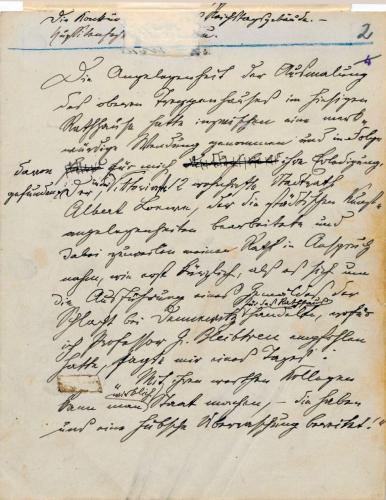 Die Konkur Reichstagsgebäude. –
2
Die Angelegenheit der Ausmalung
des oberen Treppenhauses im hiesigen
Rathhause hatte inzwischen eine merk-
würdige Wendung genommen und in Folge
davon für mich ihre Erledigung
gefunden. Der wohnhafte Stadtrath
Albert Loewe, der die städtischen Kunst-
angelegenheiten bearbeitete und
dabei zuweilen meinen Rath in Anspruch
nahm, wie erst kürzlich, als es sich um
die Ausführung eines Gemäldes der
für das Rathhaus
Schlacht bei Dennewitz handelte, wofür
ich Professor G. Bleibtreu empfohlen
hatte, sagte mir eines Tages:
"Mit ihren werthen Kollegen
wirklich
kann man Staat machen, – die haben
uns eine hübsche Überraschung bereitet!"